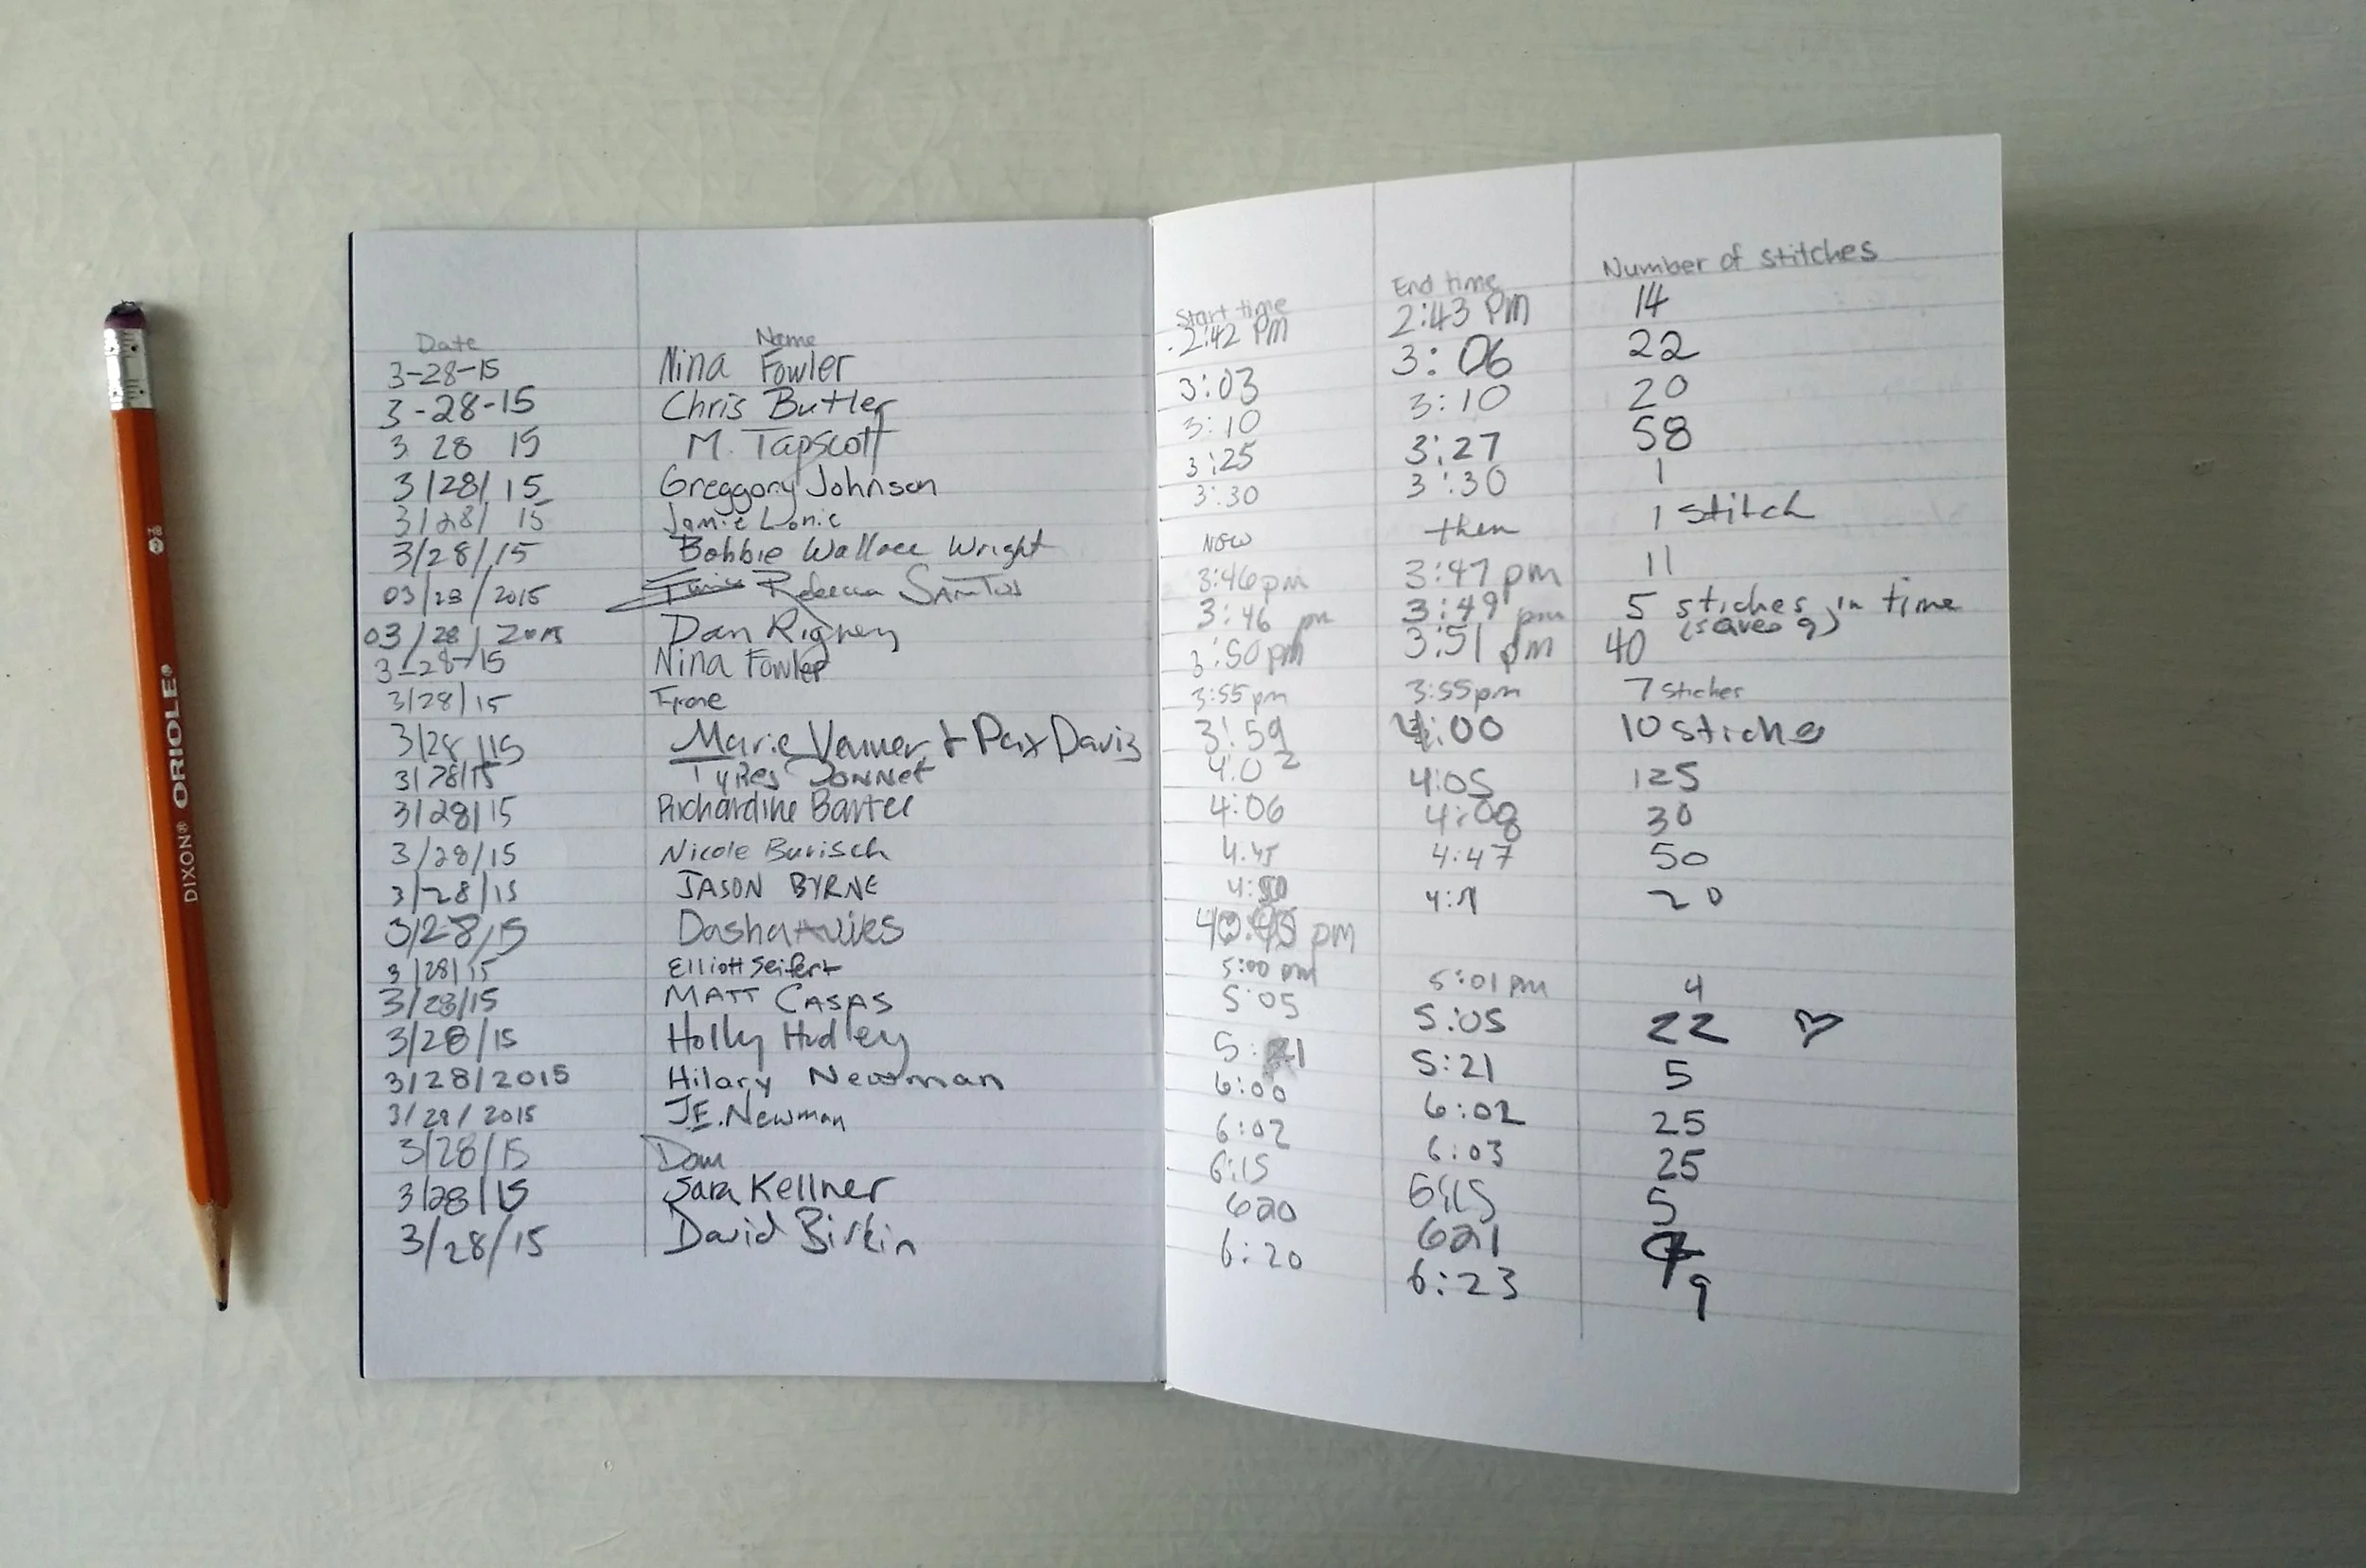 DIXON® ORIOLE®
Date Name Start time End time Number of stitches
3-28-15 Nina Fowler 2:42 PM 2:43 PM 14
3-28-15 Chris Butler 3:03 3:06 22
3 28 15 M. Tapscott 3:10 3:10 20
3/28/15 Greggory Johnson 3:25 3:27 58
3/28/15 Jamie Lonie 3:30 3:30 1
3/28/15 Bobbie Wallace Wright NOW then 1 stitch
03/28/2015 Rebecca SANTOS 3:46pm 3:47 pm 11
03/28/2015 Dan Rigney 3:46 pm 3:49 pm 5 stiches in time
(saves 9)
3-28-15 Nina Fowler 3:50pm 3:51 pm 40
3/28/15 3:55pm 3:55pm 7 stiches
3/28/15 Marie + Pax Davis 3:59 4:00 10 stiches
3/28/15 4:02 4:05 125
3/28/15 Richardine 4:06 4:08 30
3/28/15 Nicole Burisch 4.45 4:47 50
3/28/15 JASON BYRNE 4:50 20
3/28/15 Dasha pm
3/28/15 Elliott Seifert 5:00 pm 5:01 pm 4
3/28/15 MATT CASAS 5:05 5:05 22 ♡
3/28/15 Holly Hudley 5:21 5:21 5
3/28/2015 Hilary Newman 6:00 6:02 25
3/28/2015 J.E. Newman 6:02 6:03 25
3/28/15 6:15 6:15 5
3/28/15 Sara Kellner 620 621
3/28/15 David Birkin 6:20 6:23 9